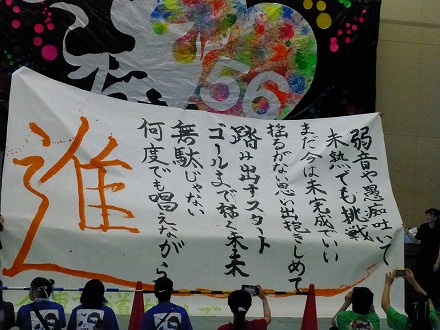 弱音や愚痴吐いて
未熟でも挑戦
まだ今は未完成でいい
揺るがない思い出抱きしめて
踏み出すスタート
ゴールまで続く未来
無駄じゃない
何度でも唱えながら
進
56